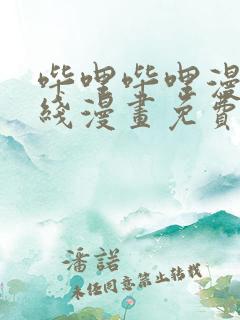 哔哩哔哩漫
线漫畫免費
潘諾
未经同意禁止转载